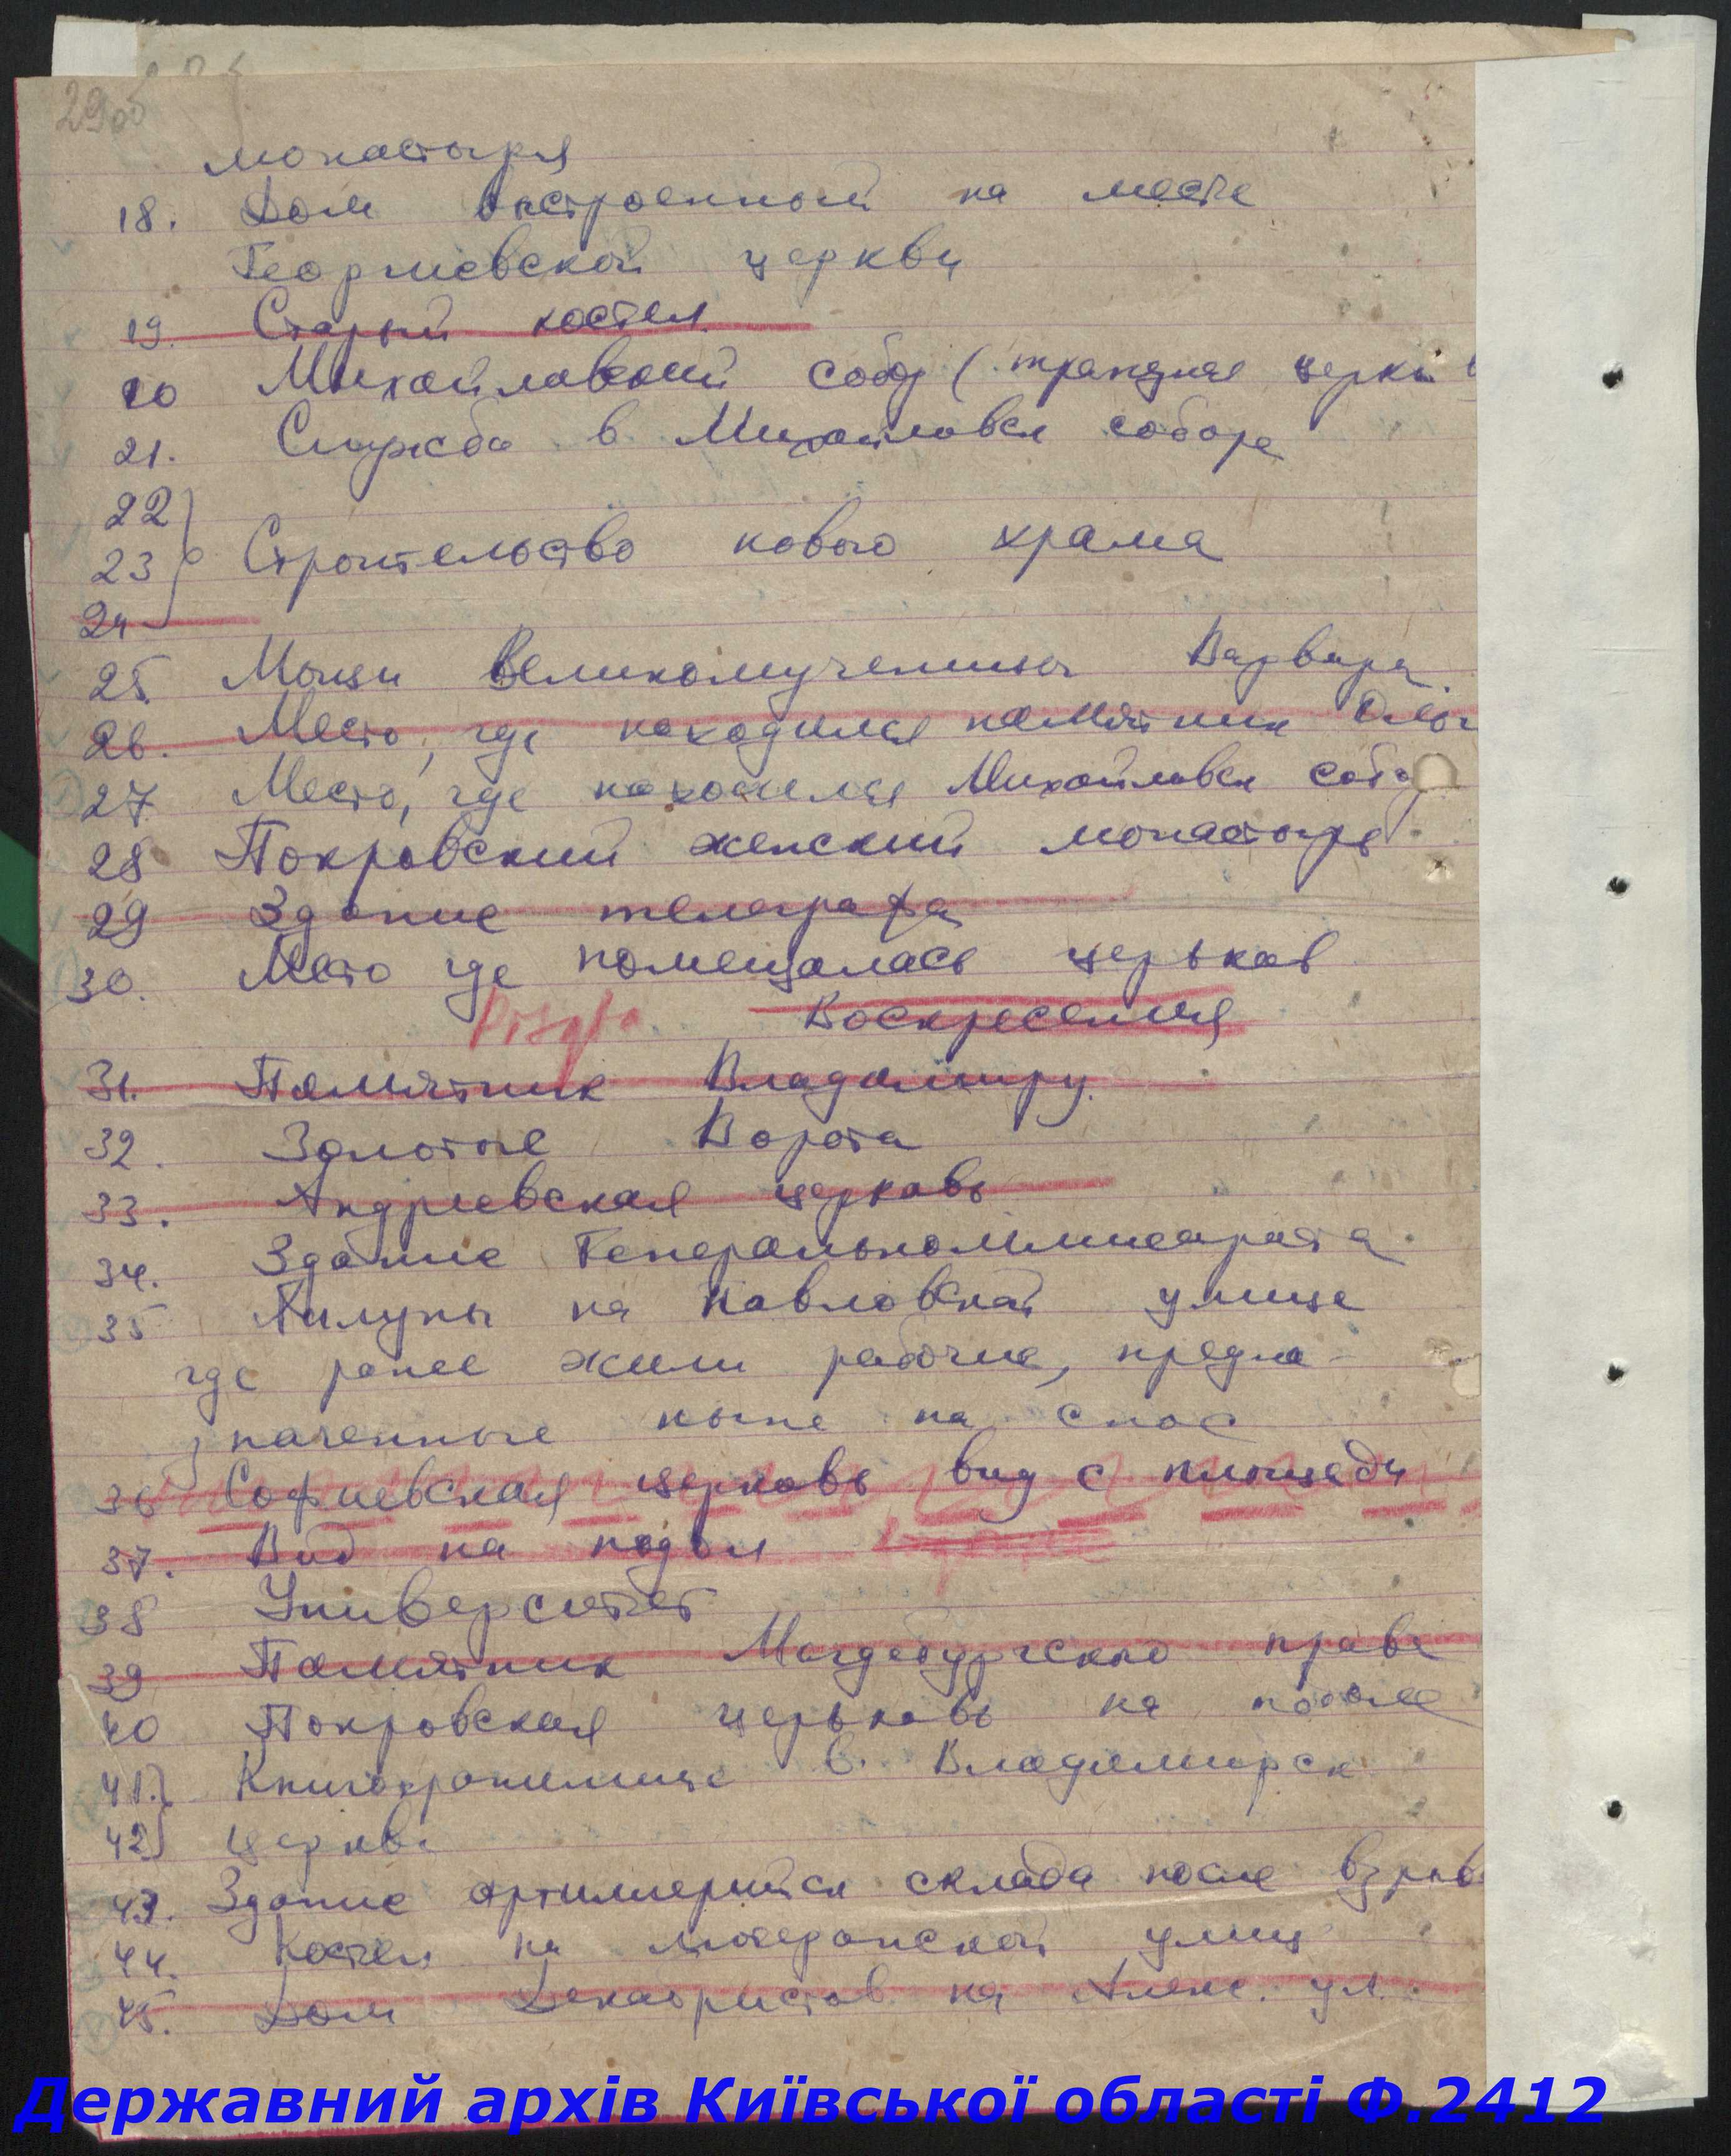 29об
монастыря
18. Дом выстроенный на месте
Георгиевской церкви
19. Старый костел
20 Михайловский собор (трапезная церковь
21. Служба в Михайловск соборе
22
23 Строительство нового храма
24
25 Мощи великомученицы Варвары
26. Место, где находился памятник Ольг
27 Место, где находился Михайловск собор
28 Покровский женский монастырь
29 Здание телеграфа
30. Место где помещалась церьков
Воскресения
31. Памятник Владимиру.
32. Золотые Ворота
33. Андреевская церковь
34. Здание Генералькомиссариата
35 Халупы на Павловской улице
где ранее жили рабочие, предна-
значенные ныне на снос
36 Софиевская церковь вид с площади
37. Вид на подол
38 Университет
39 Памятник Магдебургского праве
40 Покровская церьковь на подоле
41. Книгохранилище в. Владимирск
42 церкви
43. Здание артиллерийск склада после взрыв
44. Костел на лютеранской улиц
45. Дом Декабристов на Алекс. ул.
Державний архів Київської області Ф.2412